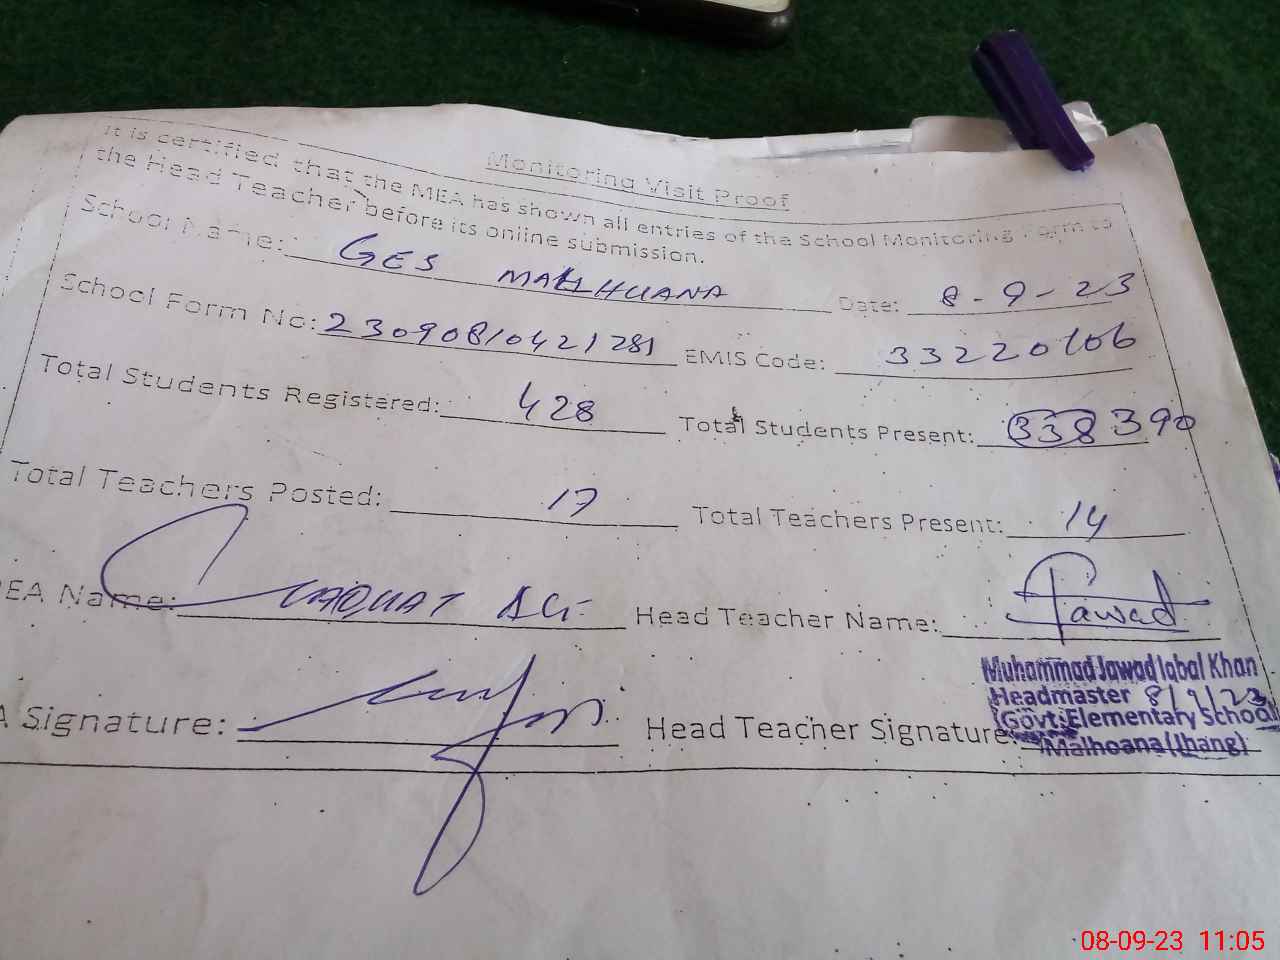 Monitoring Visit Proof
It is certified that the MEA has shown all entries of the School Monitoring Form to
the Head Teacher before its online submission.
School Name: GES MALHUANA Date: 8-9-23
School Form No: 23090810421281 EMIS Code: 33220106
Total Students Registered: 428 Total Students Present: 338 390
Total Teachers Posted: 17 Total Teachers Present: 14
EA Name: LIAQUAT ALI Head Teacher Name: Jawad
A Signature: Head Teacher Signature:
Muhammad Jawad Iqbal Khan
Headmaster 8/9/23
Govt: Elementary School
Malhoana (Jhang)
08-09-23 11:05